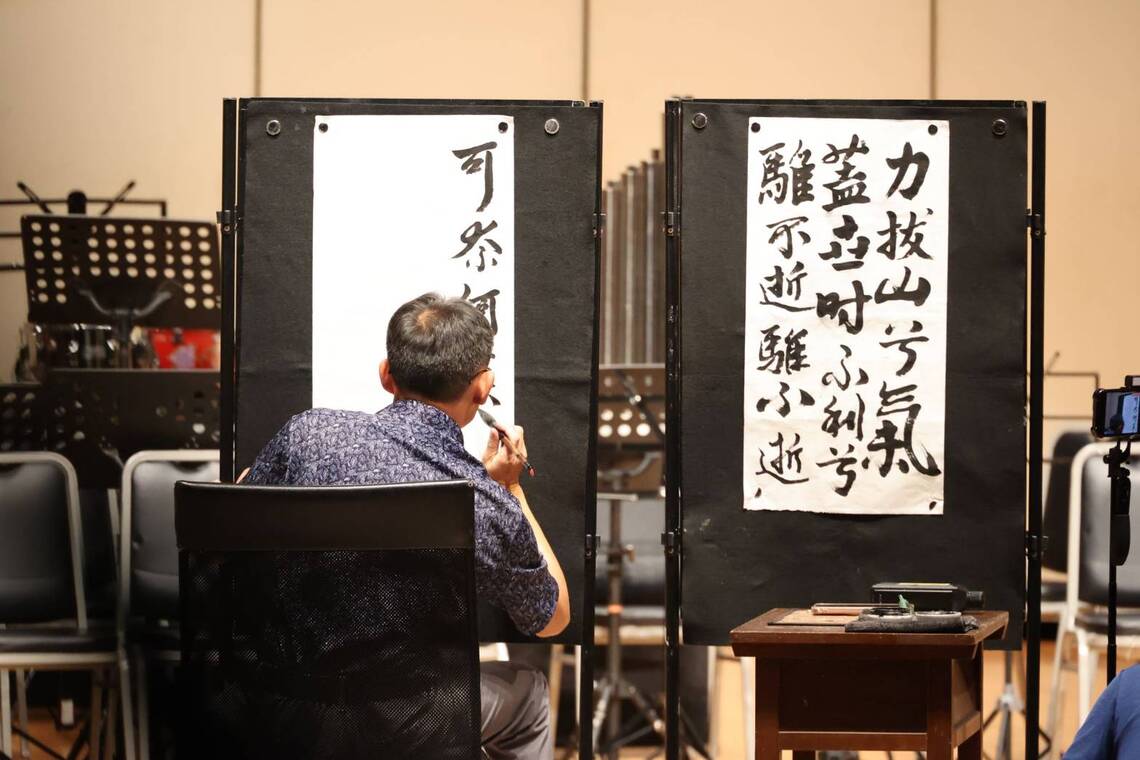 力拔山兮氣
蓋世时不利兮
騅不逝騅不逝
可奈何